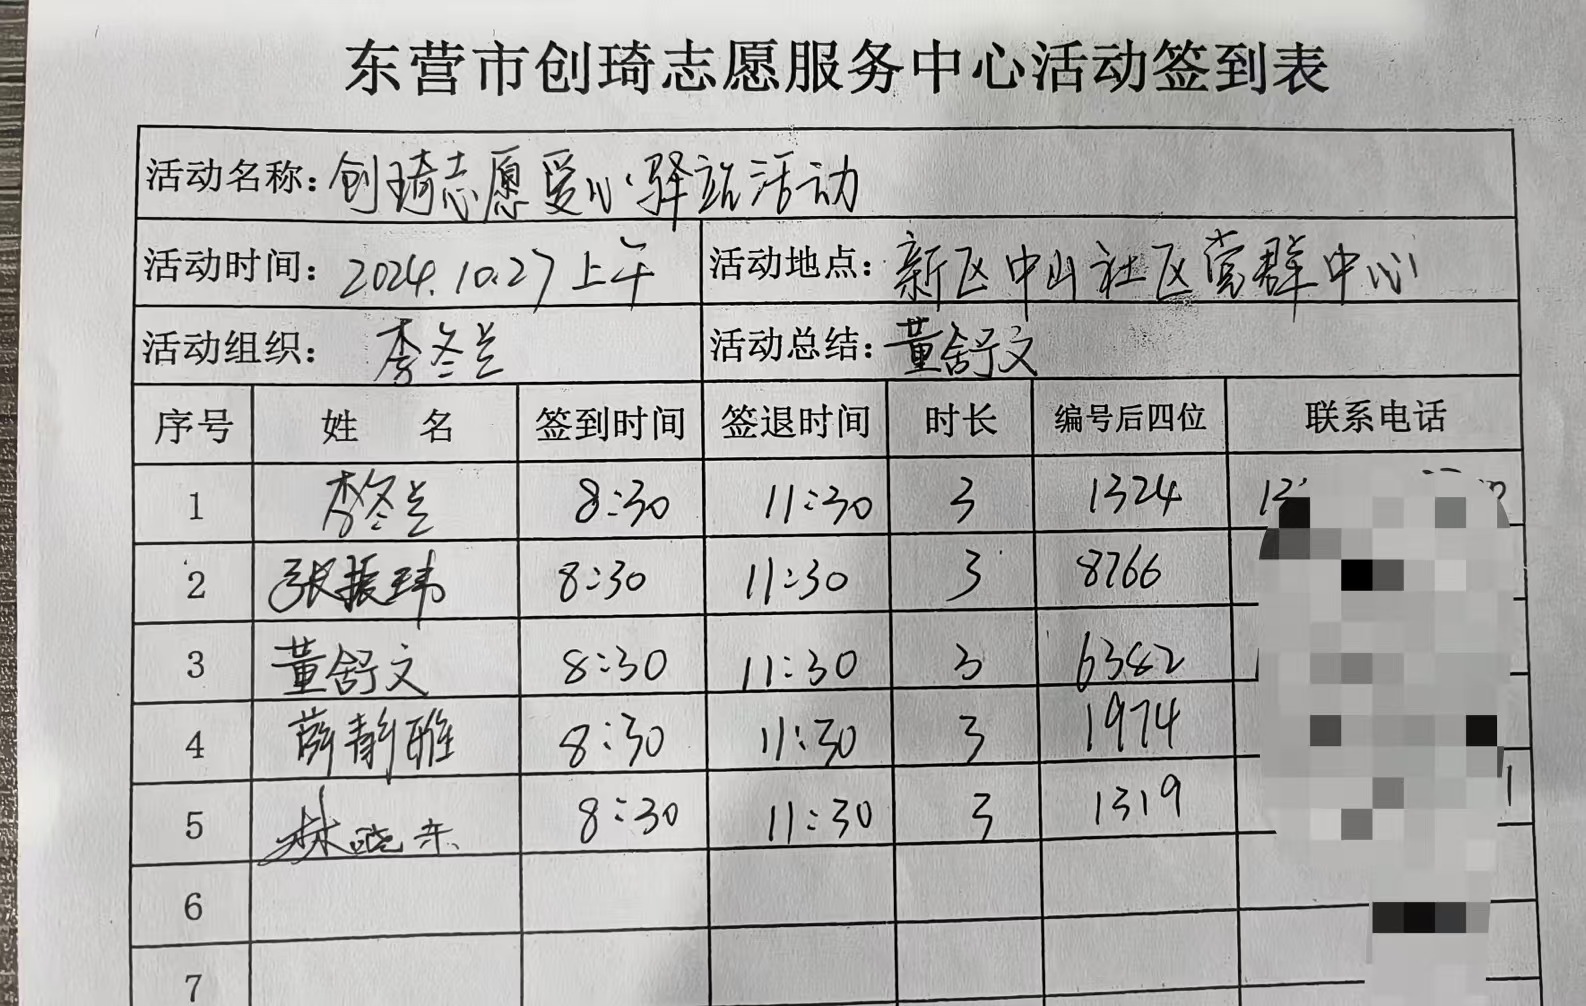 东营市创琦志愿服务中心活动签到表
活动名称：创琦志愿爱心驿站活动
活动时间：2024.10.27上午 活动地点：新区中山社区党群中心
活动组织：李冬兰 活动总结：董舒文
序号 姓 名 签到时间 签退时间 时长 编号后四位 联系电话
1 李冬兰 8:30 11:30 3 1324
2 张振玮 8:30 11:30 3 8766
3 董舒文 8:30 11:30 3 6382
4 薛静雅 8:30 11:30 3 1974
5 林晓东 8:30 11:30 3 1319
6
7